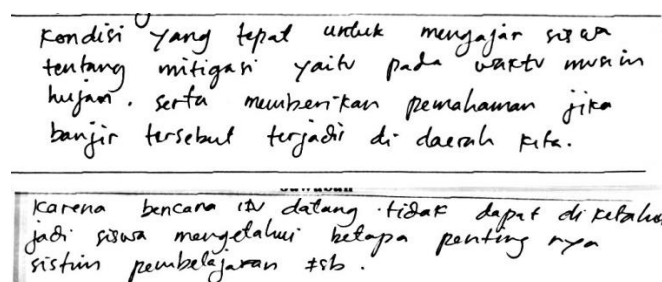 Kondisi yang tepat untuk mengajar siswa
tentang mitigasi yaitu pada waktu musim
hujan. serta memberikan pemahaman jika
banjir tersebut terjadi di daerah kita.
Karena bencana itu datang tidak dapat di ketahui
jadi siswa mengetahui betapa penting nya
sistim pembelajaran tsb.